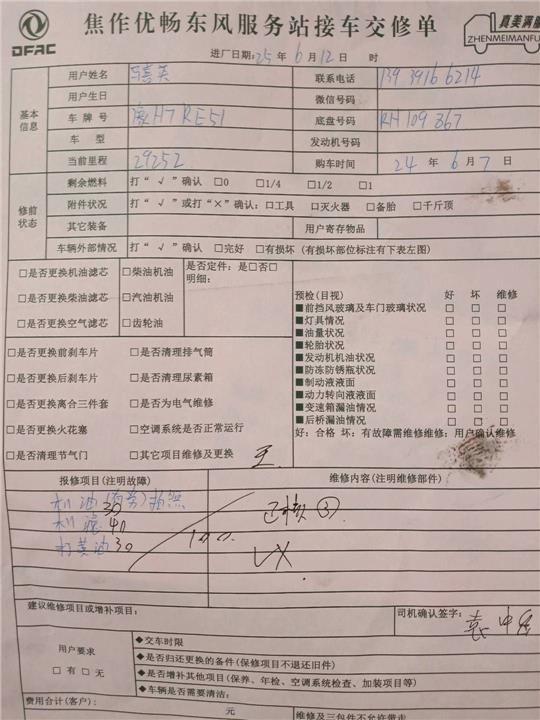 DFAC
焦作优畅东风服务站接车交修单
真美满服
ZHENMEIMANFU
进厂日期:25年6月12日 时
基本信息
用户姓名
联系电话 139 3916 6214
用户生日 微信号码
车牌号 豫H7RE51 底盘号码 RH109367
车型 发动机号码
当前里程 29252 购车时间 24年6月7日
修前状态
剩余燃料 打“√”确认 □0 □1/4 □1/2 □1
附件状况 打“√”或打“×”确认:□工具 □灭火器 □备胎 □千斤顶
其它装备 用户寄存物品
车辆外部情况 打“√”确认 □完好 □有损坏(有损坏部位标注有下表左图)
□是否更换机油滤芯 □柴油机油
□是否更换柴油滤芯 □汽油机油
□是否更换空气滤芯 □齿轮油
是否定件:是□否□
明细:
□是否更换前刹车片 □是否清理排气筒
□是否更换后刹车片 □是否清理尿素箱
□是否更换离合三件套 □是否为电气维修
□是否更换火花塞 □空调系统是否正常运行
□是否清理节气门 □其它项目维修及更换
王
预检(目视) 好 坏 维修
■前挡风玻璃及车门玻璃状况 □ □ □
■灯具情况 □ □ □
■油量状况 □ □ □
■轮胎状况 □ □ □
■发动机机油状况 □ □ □
■防冻防锈瓶状况 □ □ □
■制动液液面 □ □ □
■动力转向液液面 □ □ □
■变速箱漏油情况 □ □ □
■后桥漏油情况 □ □ □
好:合格 坏:有故障需维修维修:用户确认维修
报修项目(注明故障) 维修内容(注明维修部件)
机油(有劳)拍照
30
机滤 40
打黄油 30
100.
已核③
建议维修项目或增补项目:
司机确认签字:
用户要求
□有□无
◆交车时限
◆是否归还更换的备件(保修项目不退还旧件)
◆是否增补其他项目(保养、年检、空调系统检查、加装项目等)
◆车辆是否需要清洁:
费用合计(客户): 元
维修及三包件不允许带走